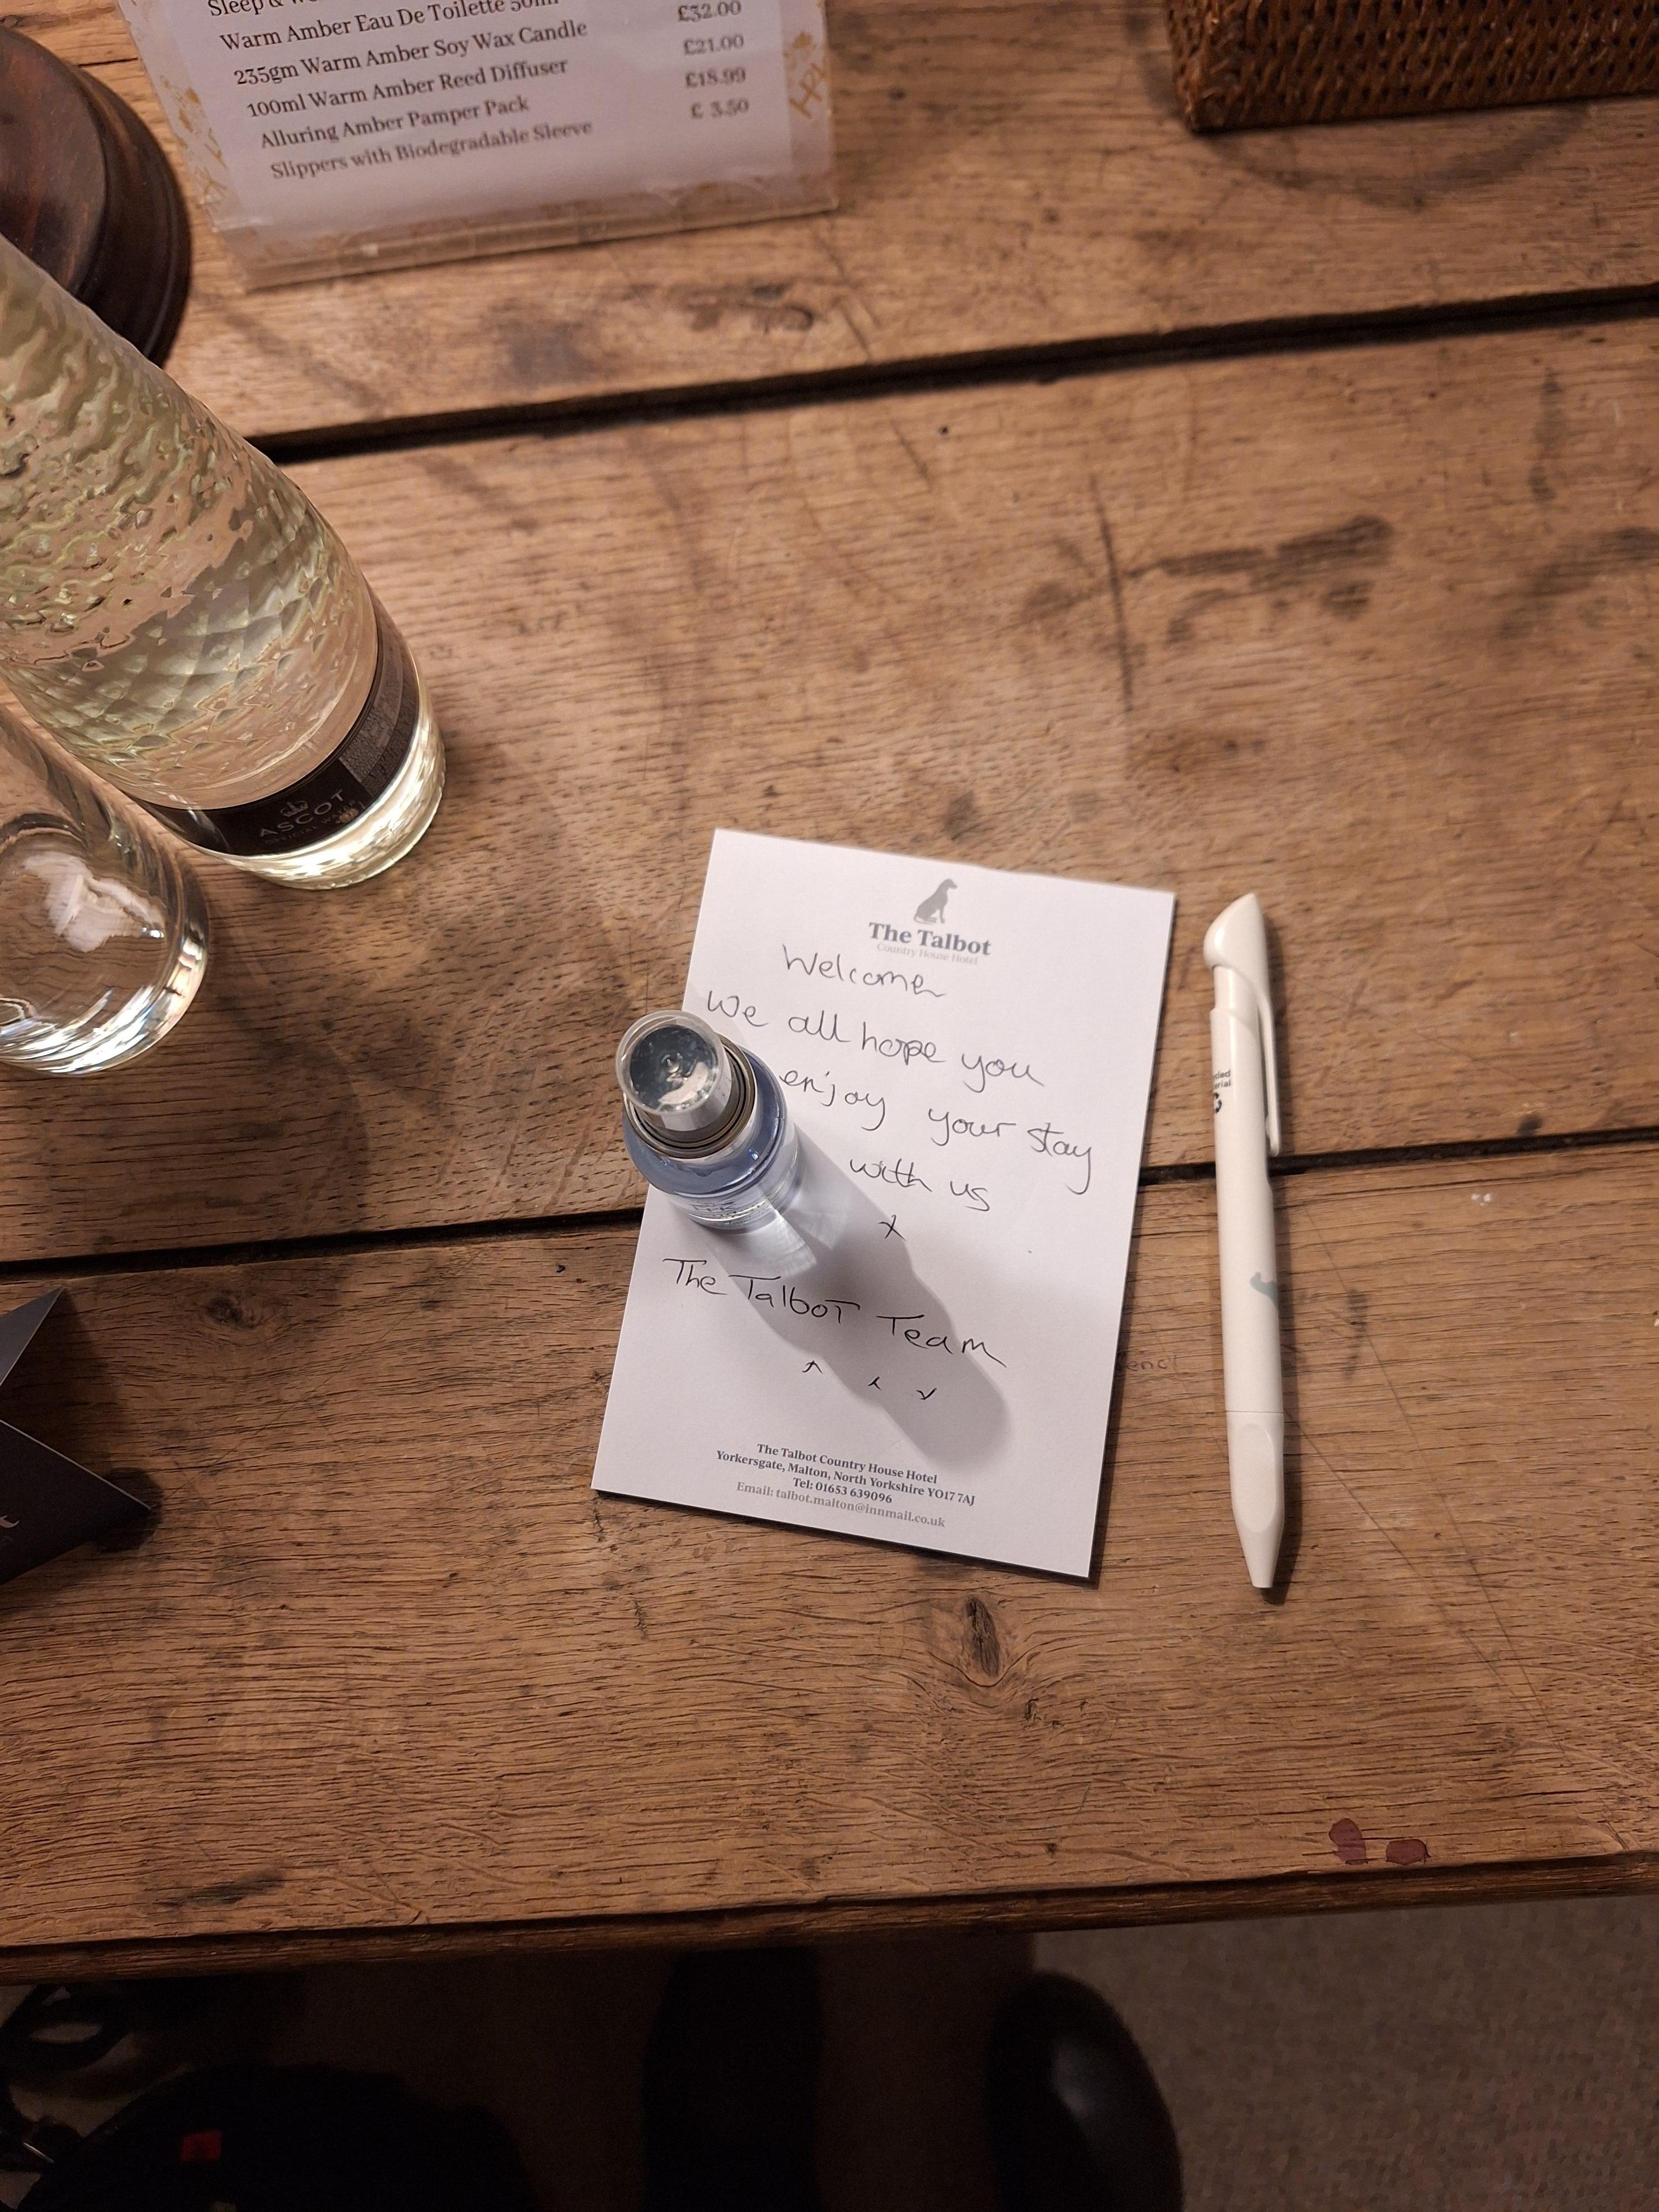 Sleep &
Warm Amber Eau De Toilette 50ml
235gm Warm Amber Soy Wax Candle
100ml Warm Amber Reed Diffuser
Alluring Amber Pamper Pack
Slippers with Biodegradable Sleeve
£32.00
£21.00
£18.99
£ 3.50
ASCOT
The Talbot
Country House Hotel
Welcome
We all hope you
enjoy your stay
with us
x
The Talbot Team
x x x
The Talbot Country House Hotel
Yorkersgate, Malton, North Yorkshire YO17 7AJ
Tel: 01653 639096
Email: talbot.malton@innmail.co.uk